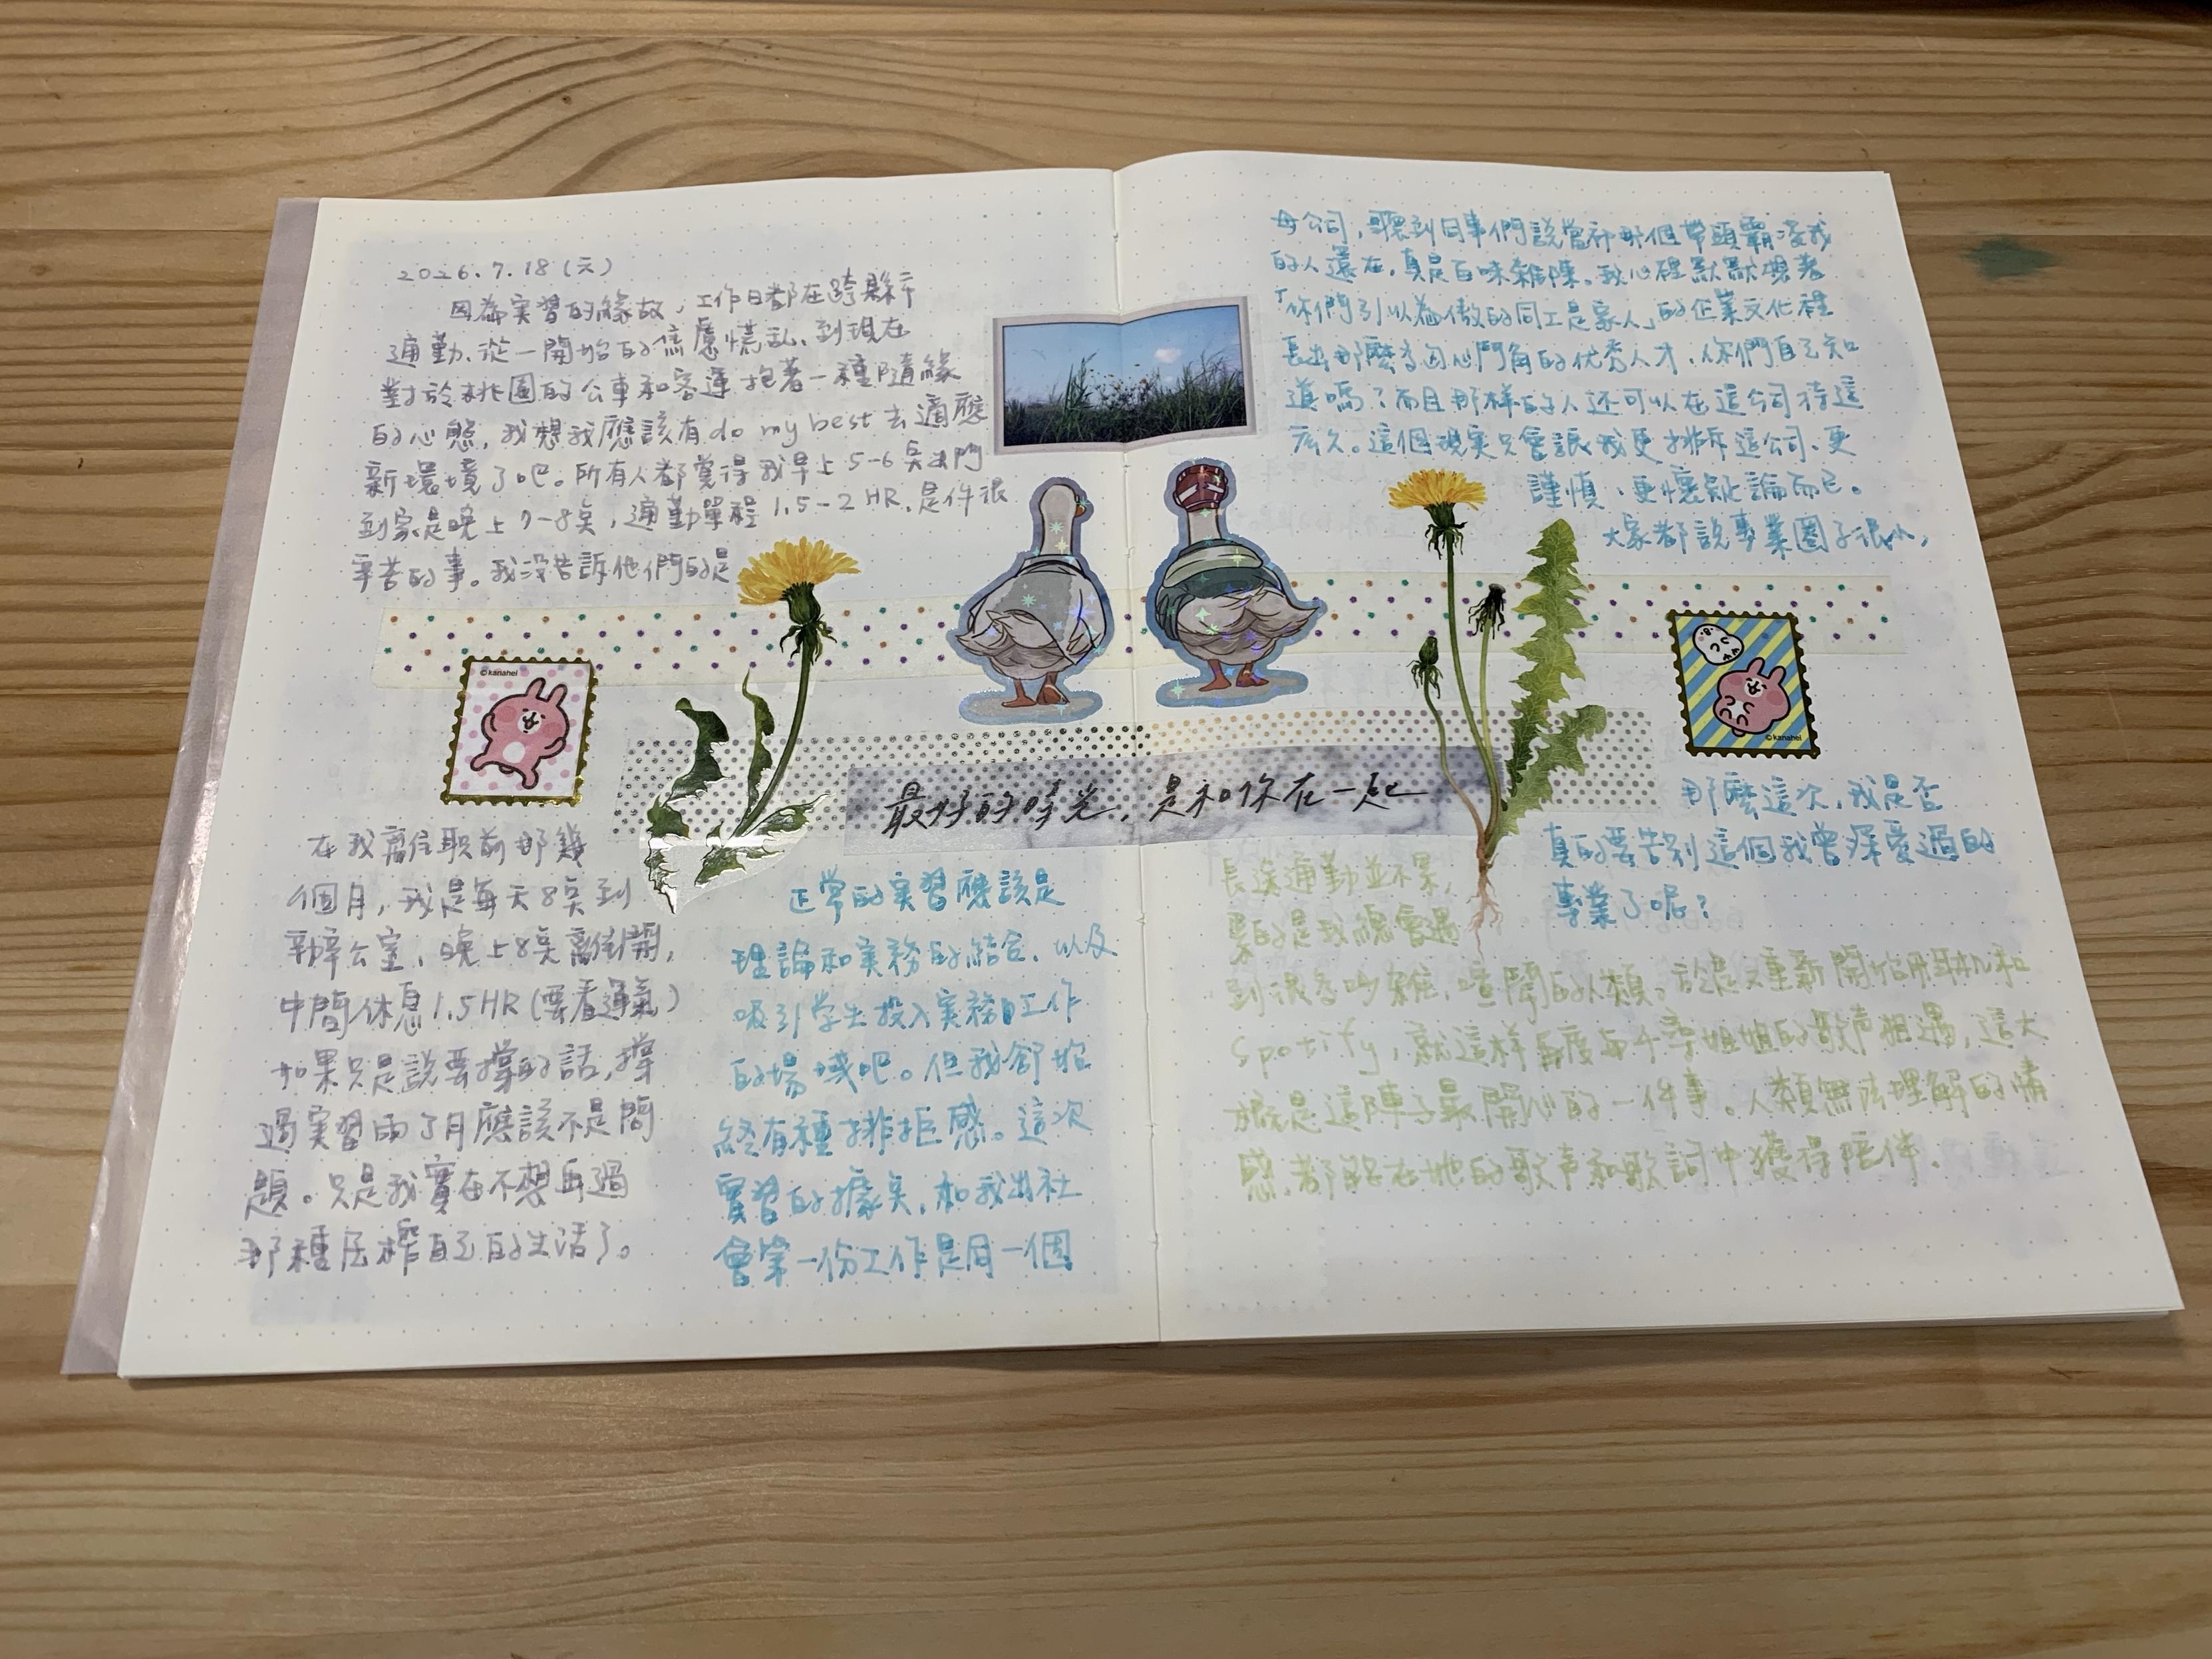 2026.7.18(六)
因為実習的緣故，工作日都在跨縣市
通勤、從一開始的焦慮慌乱、到現在
對於桃園的公車和客運抱著一種隨緣
的心態，我想我應該有do my best去適應
新環境了吧。所有人都覺得我早上5-6点出門
到家是晚上7-8点，通勤單程1.5-2HR，是件很
辛苦的事。我沒告訴他們的是
©kanahei
在我離住職前那幾
個月，我是每天8点到
辦公室、晚上8点離開，
中間休息1.5HR(要看運氣)
如果只是說要撐的話，撐
過実習兩了月應該不是問
題。只是我實在不想再過
那種压榨自己的生活了。
最好的時光，是和你在一起
正常的実習應該是
理論和実務的結合、以及
吸引学生投入実務工作
的場域吧。但我卻始
終有種排拒感。這次
實習的據点，和我出社
會第一份工作是同一個
母公司，聽到同事們說當初那個帶頭霸凌我
的人還在，真是百味雜陳。我心裡默默想著
「你們引以為傲的同工是家人」的企業文化裡
長出那麼多勾心鬥角的优秀人才、你們自己知
道嗎？而且那样的人还可以在這公司待這
麼久。這個現実只會讓我更排斥這公司、更
謹慎、更懷疑論而已。
大家都說專業圈子很小，
©kanahei
那麼這次，我是否
真的要告別這個我曾深愛過的
專業了呢？
長途通勤並不累，
累的是我總會遇
到很多吵雜、喧鬧的人類。於是又重新開始用耳机和
Spotify，就這样再度与千寻姐姐的歌声相遇，這大
概是這陣子最開心的一件事。人類無法理解的情
感，都能在她的歌声和歌詞中獲得陪伴。